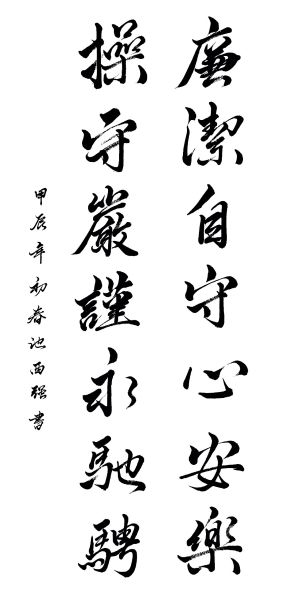 廉潔自守心安樂
操守嚴謹永馳騁
甲辰年初春池西強書